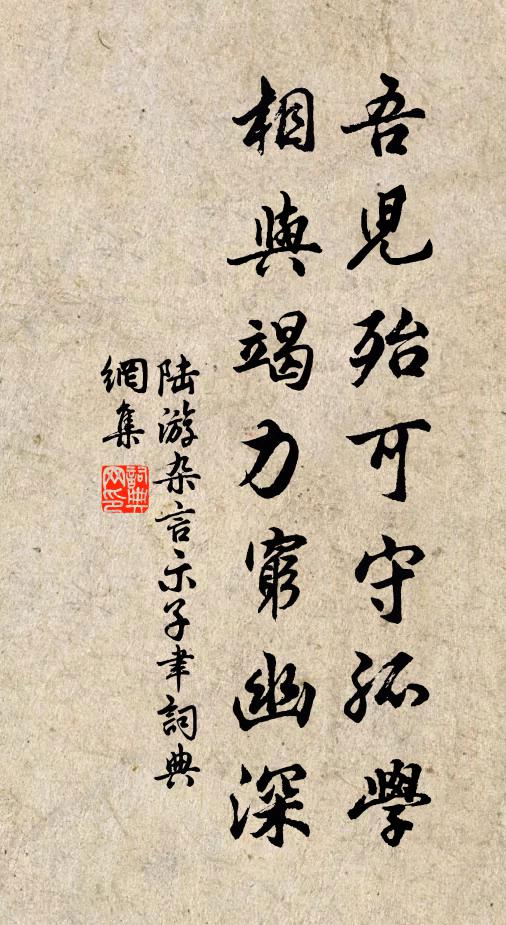 吾児殆可守孤學
相與竭力窮幽深
陆游杂言示子聿詞典
網集
詞典網印